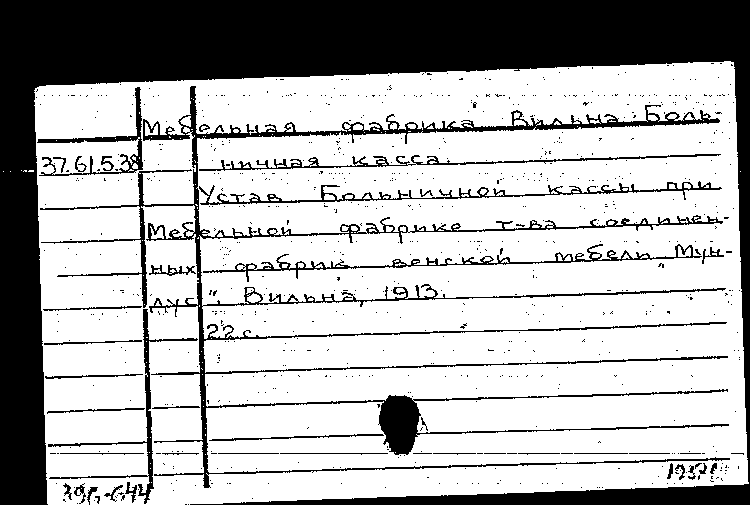 Мебельная фабрика Вильна. Боль-
37.61.5.38 ничная касса.
Устав Больничной кассы при
Мебельной фабрике т-ва соединен-
ных фабрик венской мебели „Мун-
дус". Вильна, 1913.
22 с.